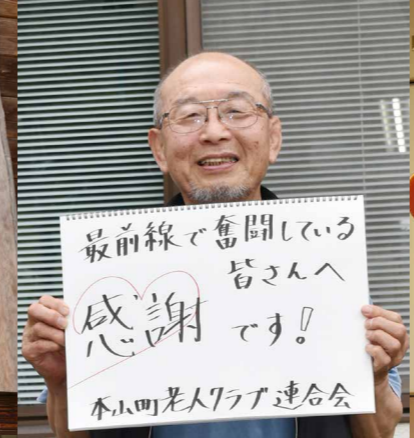 最前線で奮闘している
皆さんへ
感謝です!
本山町老人クラブ連合会